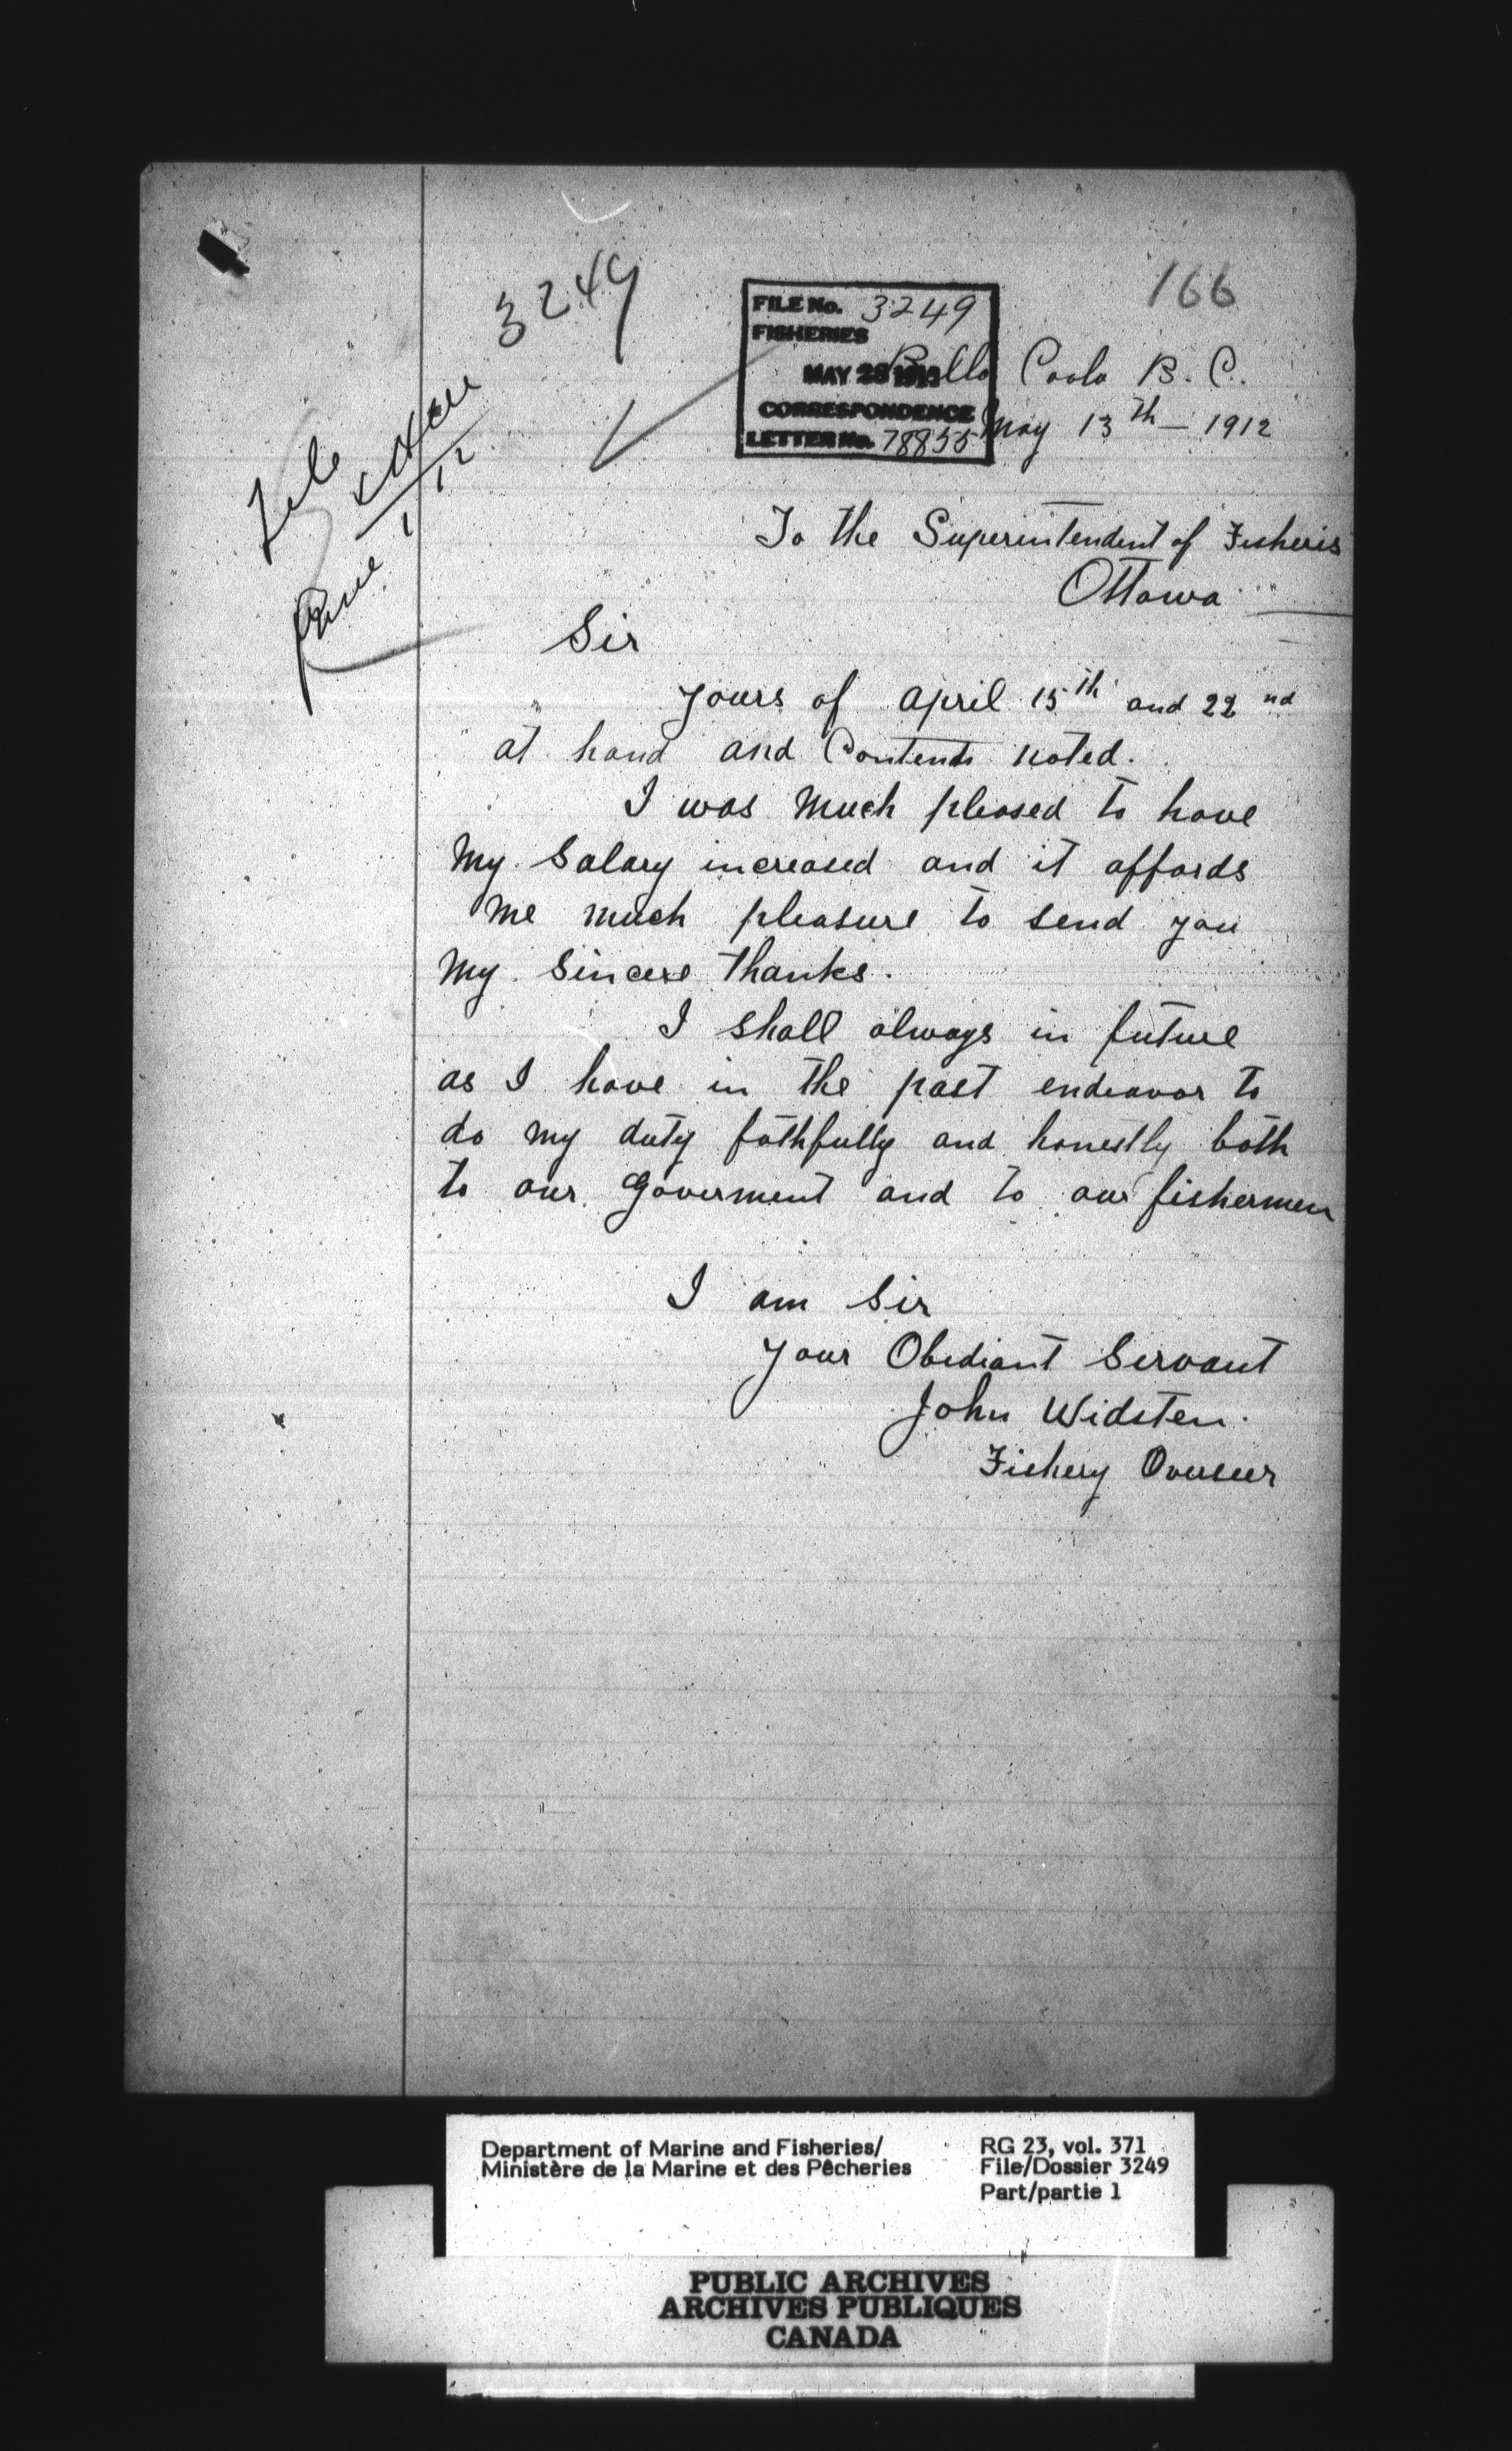 3249
166
FILE No. 3249
FISHERIES
MAY 28 1912
CORRESPONDENCE
LETTER No. 78855
Bella Coola B. C.
May 13th - 1912
File
June 1/12
To the Superintendent of Fisheris
Ottawa
Sir
Yours of April 15th and 22nd
at hand and Contents noted.
I was much pleased to have
My Salary increased and it affords
me much pleasure to send you
My Sincere thanks.
I shall always in future
as I have in the past endeavor to
do my duty fathfully and honestly both
to our Goverment and to our fishermen
I am Sir
Your Obediant Servant
John Widsten.
Fishery Overseer
Department of Marine and Fisheries/
Ministère de la Marine et des Pêcheries
RG 23, vol. 371
File/Dossier 3249
Part/partie 1
PUBLIC ARCHIVES
ARCHIVES PUBLIQUES
CANADA